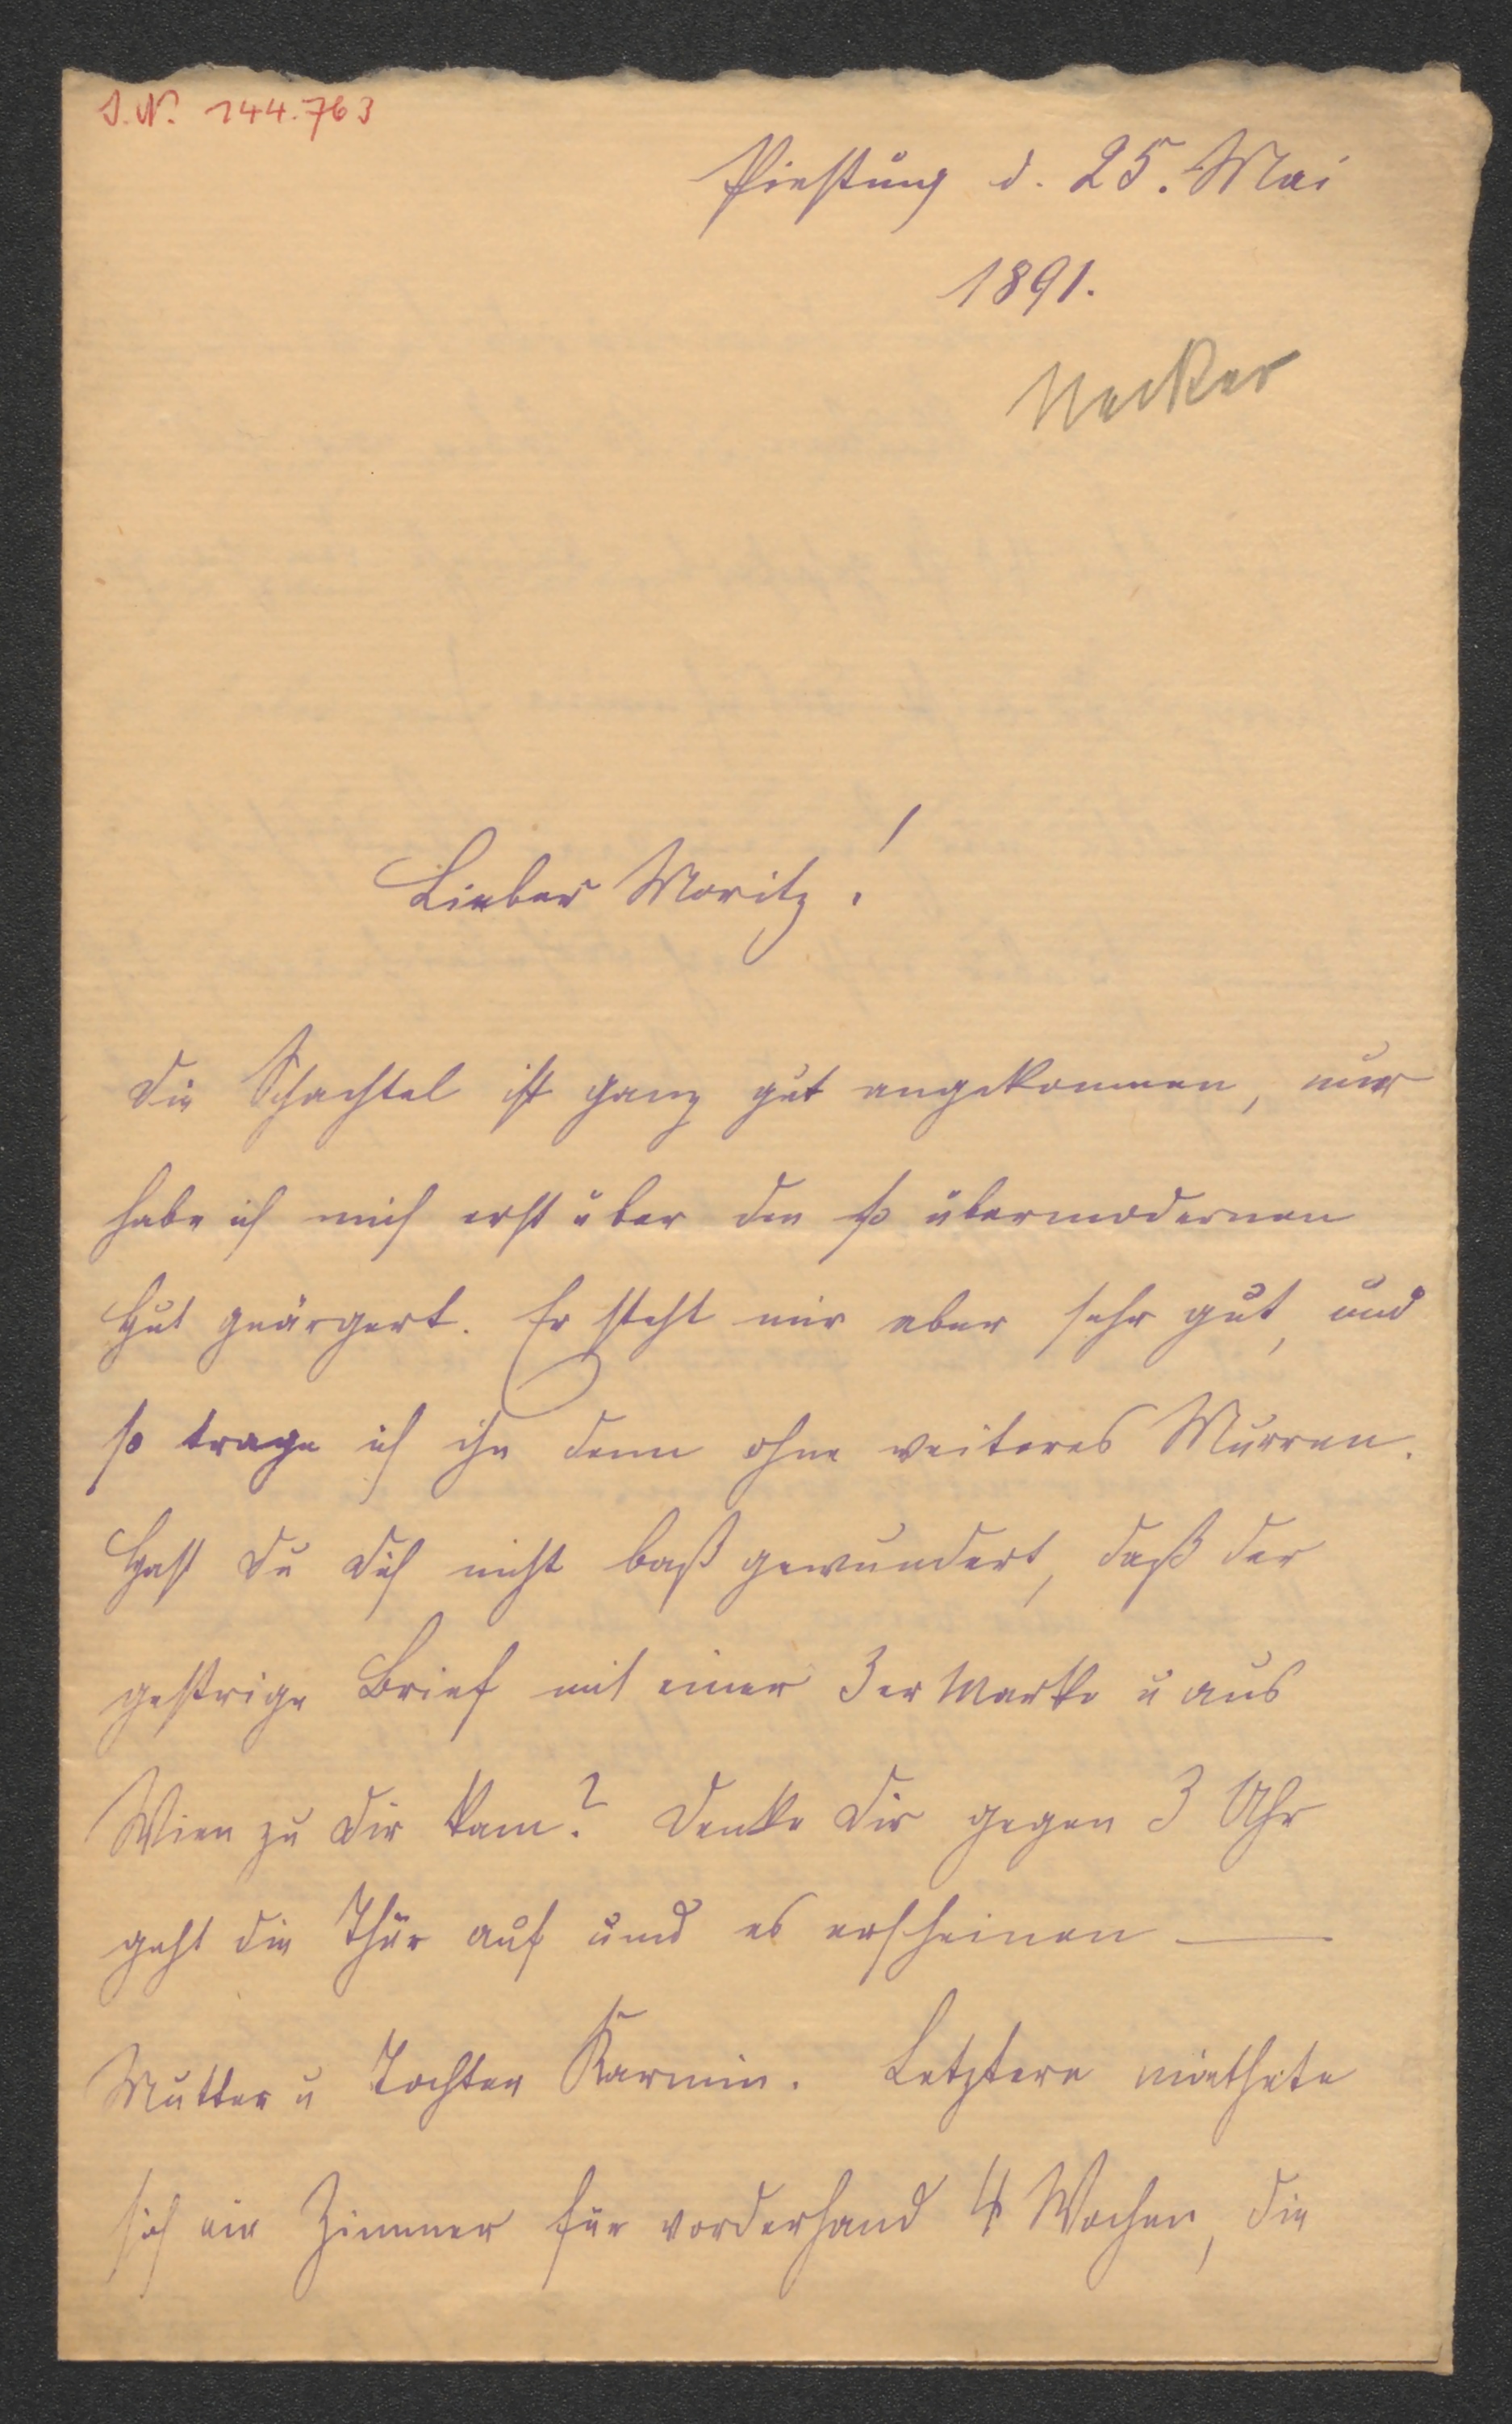 J.N. 144.763
Piestung d. 25. Mai
1891.
Necker
Lieber Moritz!
Die Schachtel ist ganz gut angekommen, nur
habe ich mich erst über den so übermodernen
Hut geärgert. Er steht mir aber sehr gut, und
so trage ich ihn denn ohne weiteres Murren.
Hast Du Dich nicht baß gewundert, daß der
gestrige Brief mit einer 3er Marke u aus
Wien zu Dir kam? Denke Dir gegen 3 Uhr
geht die Thür auf und es erscheinen —
Mutter u Tochter Karmin. Letztere miethete
sich ein Zimmer für vorderhand 4 Wochen, die